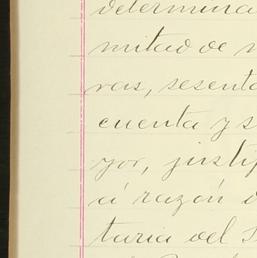 determina
mitad de
ras, sesenta
cuenta y s
yor, justi
á razón d
turia del